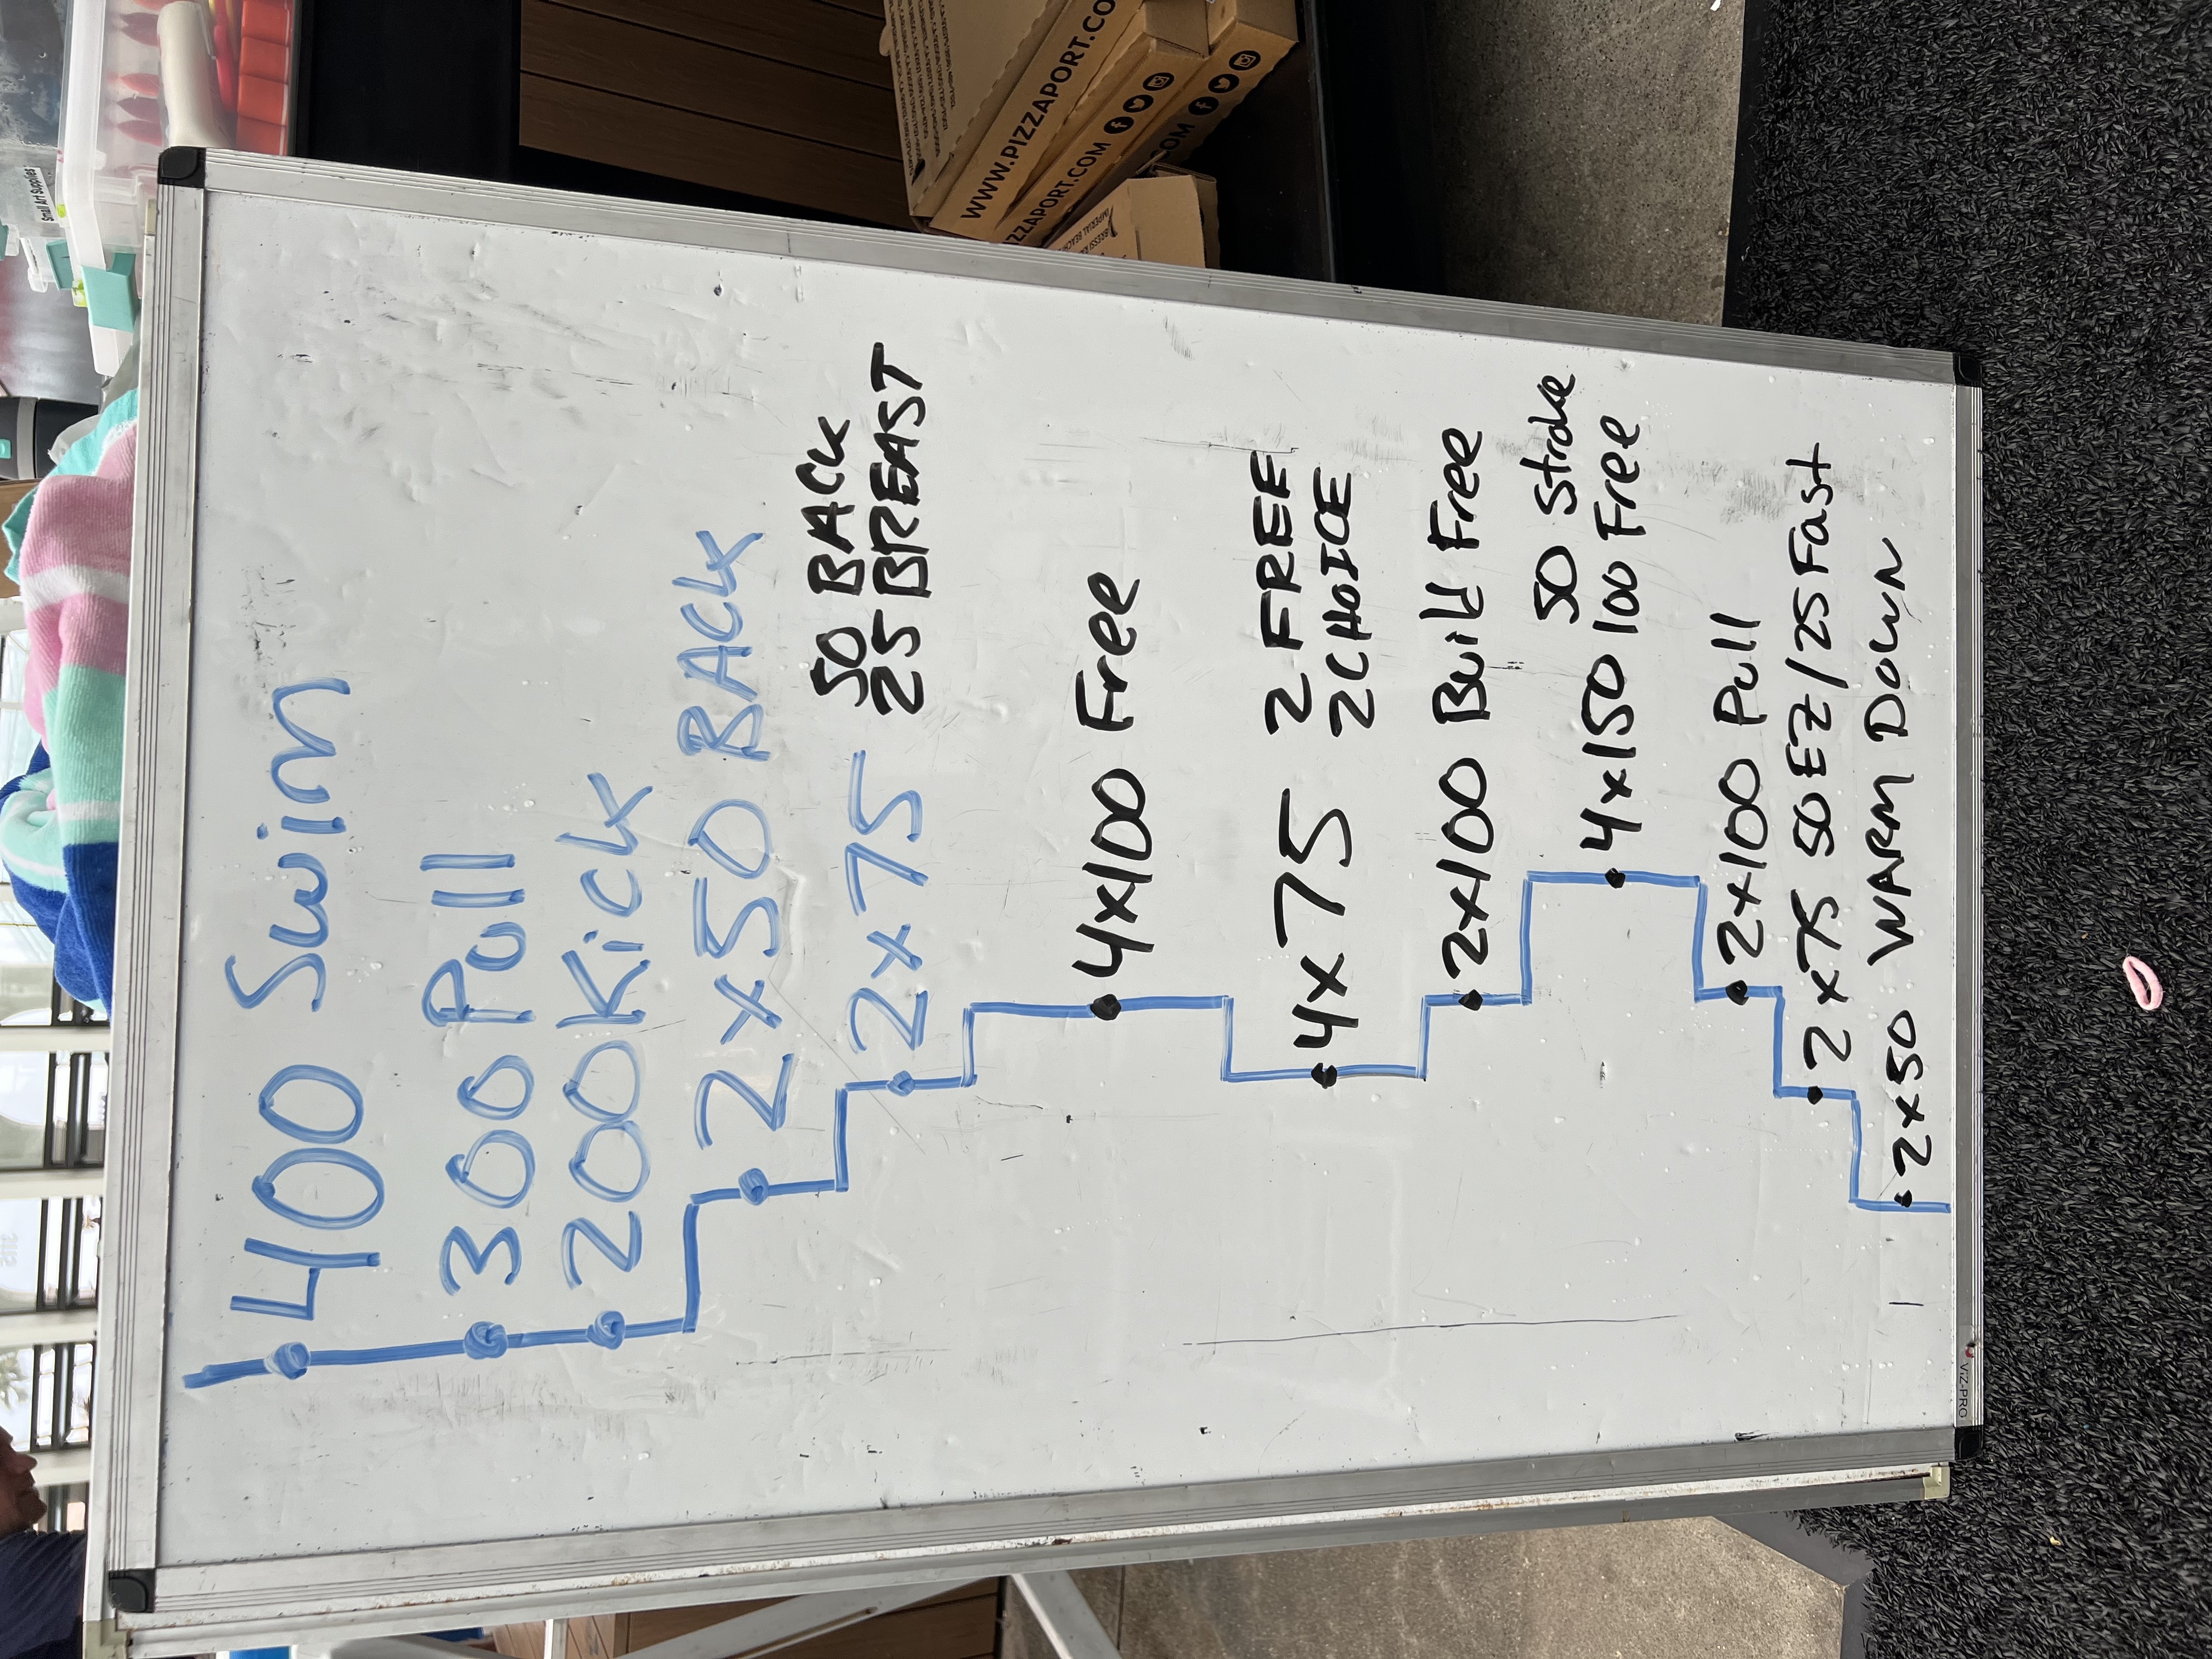 400 Swim
300 Pull
200 Kick
2x50 BACK
50 BACK
2x75 25 BREAST
4x100 Free
4x75 2 FREE
2 CHOICE
2x100 Build Free
50 Stroke
4x150 100 Free
2x100 Pull
2x75 50 EZ/25 Fast
2x50 WARM DOWN
VIZ-PRO
WWW.PIZZAPORT.CO
ZZAPORT.COM
COM
Small Art Supplies